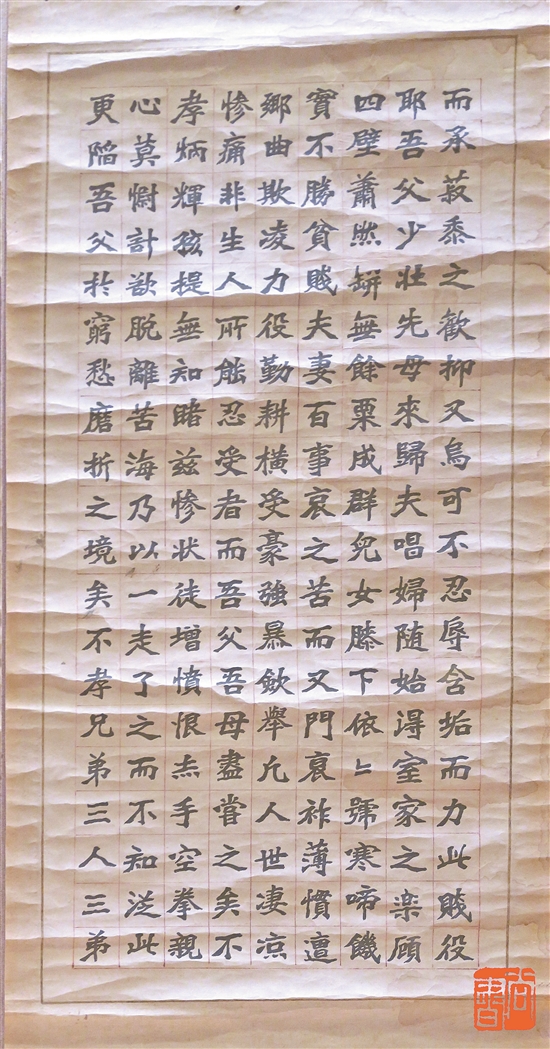 而承菽黍之歡抑又烏可不忍辱含垢而力此賤役
耶吾父少壯先母來歸夫唱婦随始得室家之楽顧
四壁蕭然缾無餘粟成群兒女膝下依〻號寒啼饑
實不勝貧賤夫妻百事哀之苦而又門衰祚薄慣遭
鄉曲欺凌力役勤耕橫受豪強暴斂舉凡人世凄凉
惨痛非生人所能忍受者而吾父吾母盡嘗之矣不
孝炳輝孩提無知睹兹惨状徒增憤恨赤手空拳親
心莫慰計欲脫離苦海乃以一走了之而不知從此
更陷吾父於窮愁磨折之境矣不孝兄弟三人三弟